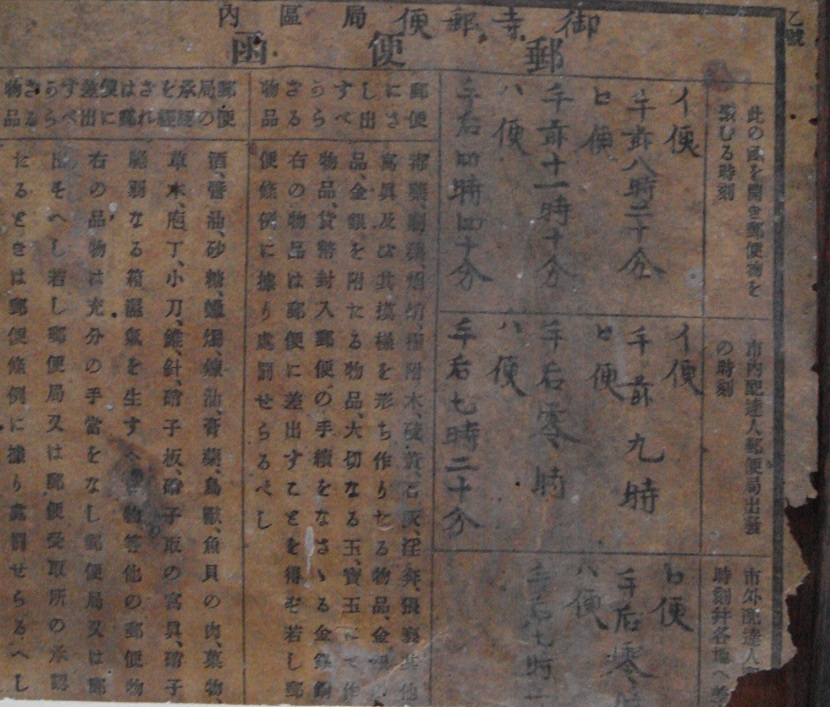 乙號
御寺郵便局區內
郵便函
此の函を開き郵便物を
むる時刻
イ便
午前八時二十分
ロ便
午前十一時十分
ハ便
午后四時四十分
市內配達人郵便局出發
の時刻
イ便
午前九時
ロ便
午后零時
ハ便
午后七時二十分
市外配達人
時刻幷各地へ
ロ便
午后零時
ハ便
午后七時
郵便
にさ
し出
すべ
からざる
物品
毒藥劇藥
寫眞及び其摸樣を形ち作りたる物品、金銀
品、金銀を附たる物品、大切なる玉、寶玉にて作
物品、貨幣封入郵便の手續をなさゝる金銀銅
右の物品は郵便に差出すことを得ず若し郵
便條例に據り處罰せらるべし
郵便
局の
承認
を經
されは
郵便に
差出
すべ
からざる
物品
酒、醤油、砂糖、蠟燭、煉油、膏藥、鳥獸、魚貝の肉、菓物、
草木、庖丁、小刀、錐、針、硝子板、硝子取の寫眞、硝子
脆弱なる箱濕氣を生すへき物等他の郵便物
右の品物は充分の手當をなし郵便局又は郵
出そへし若し郵便局又は郵便受取所の承認
たるときは郵便條例に據り處罰せらるへし